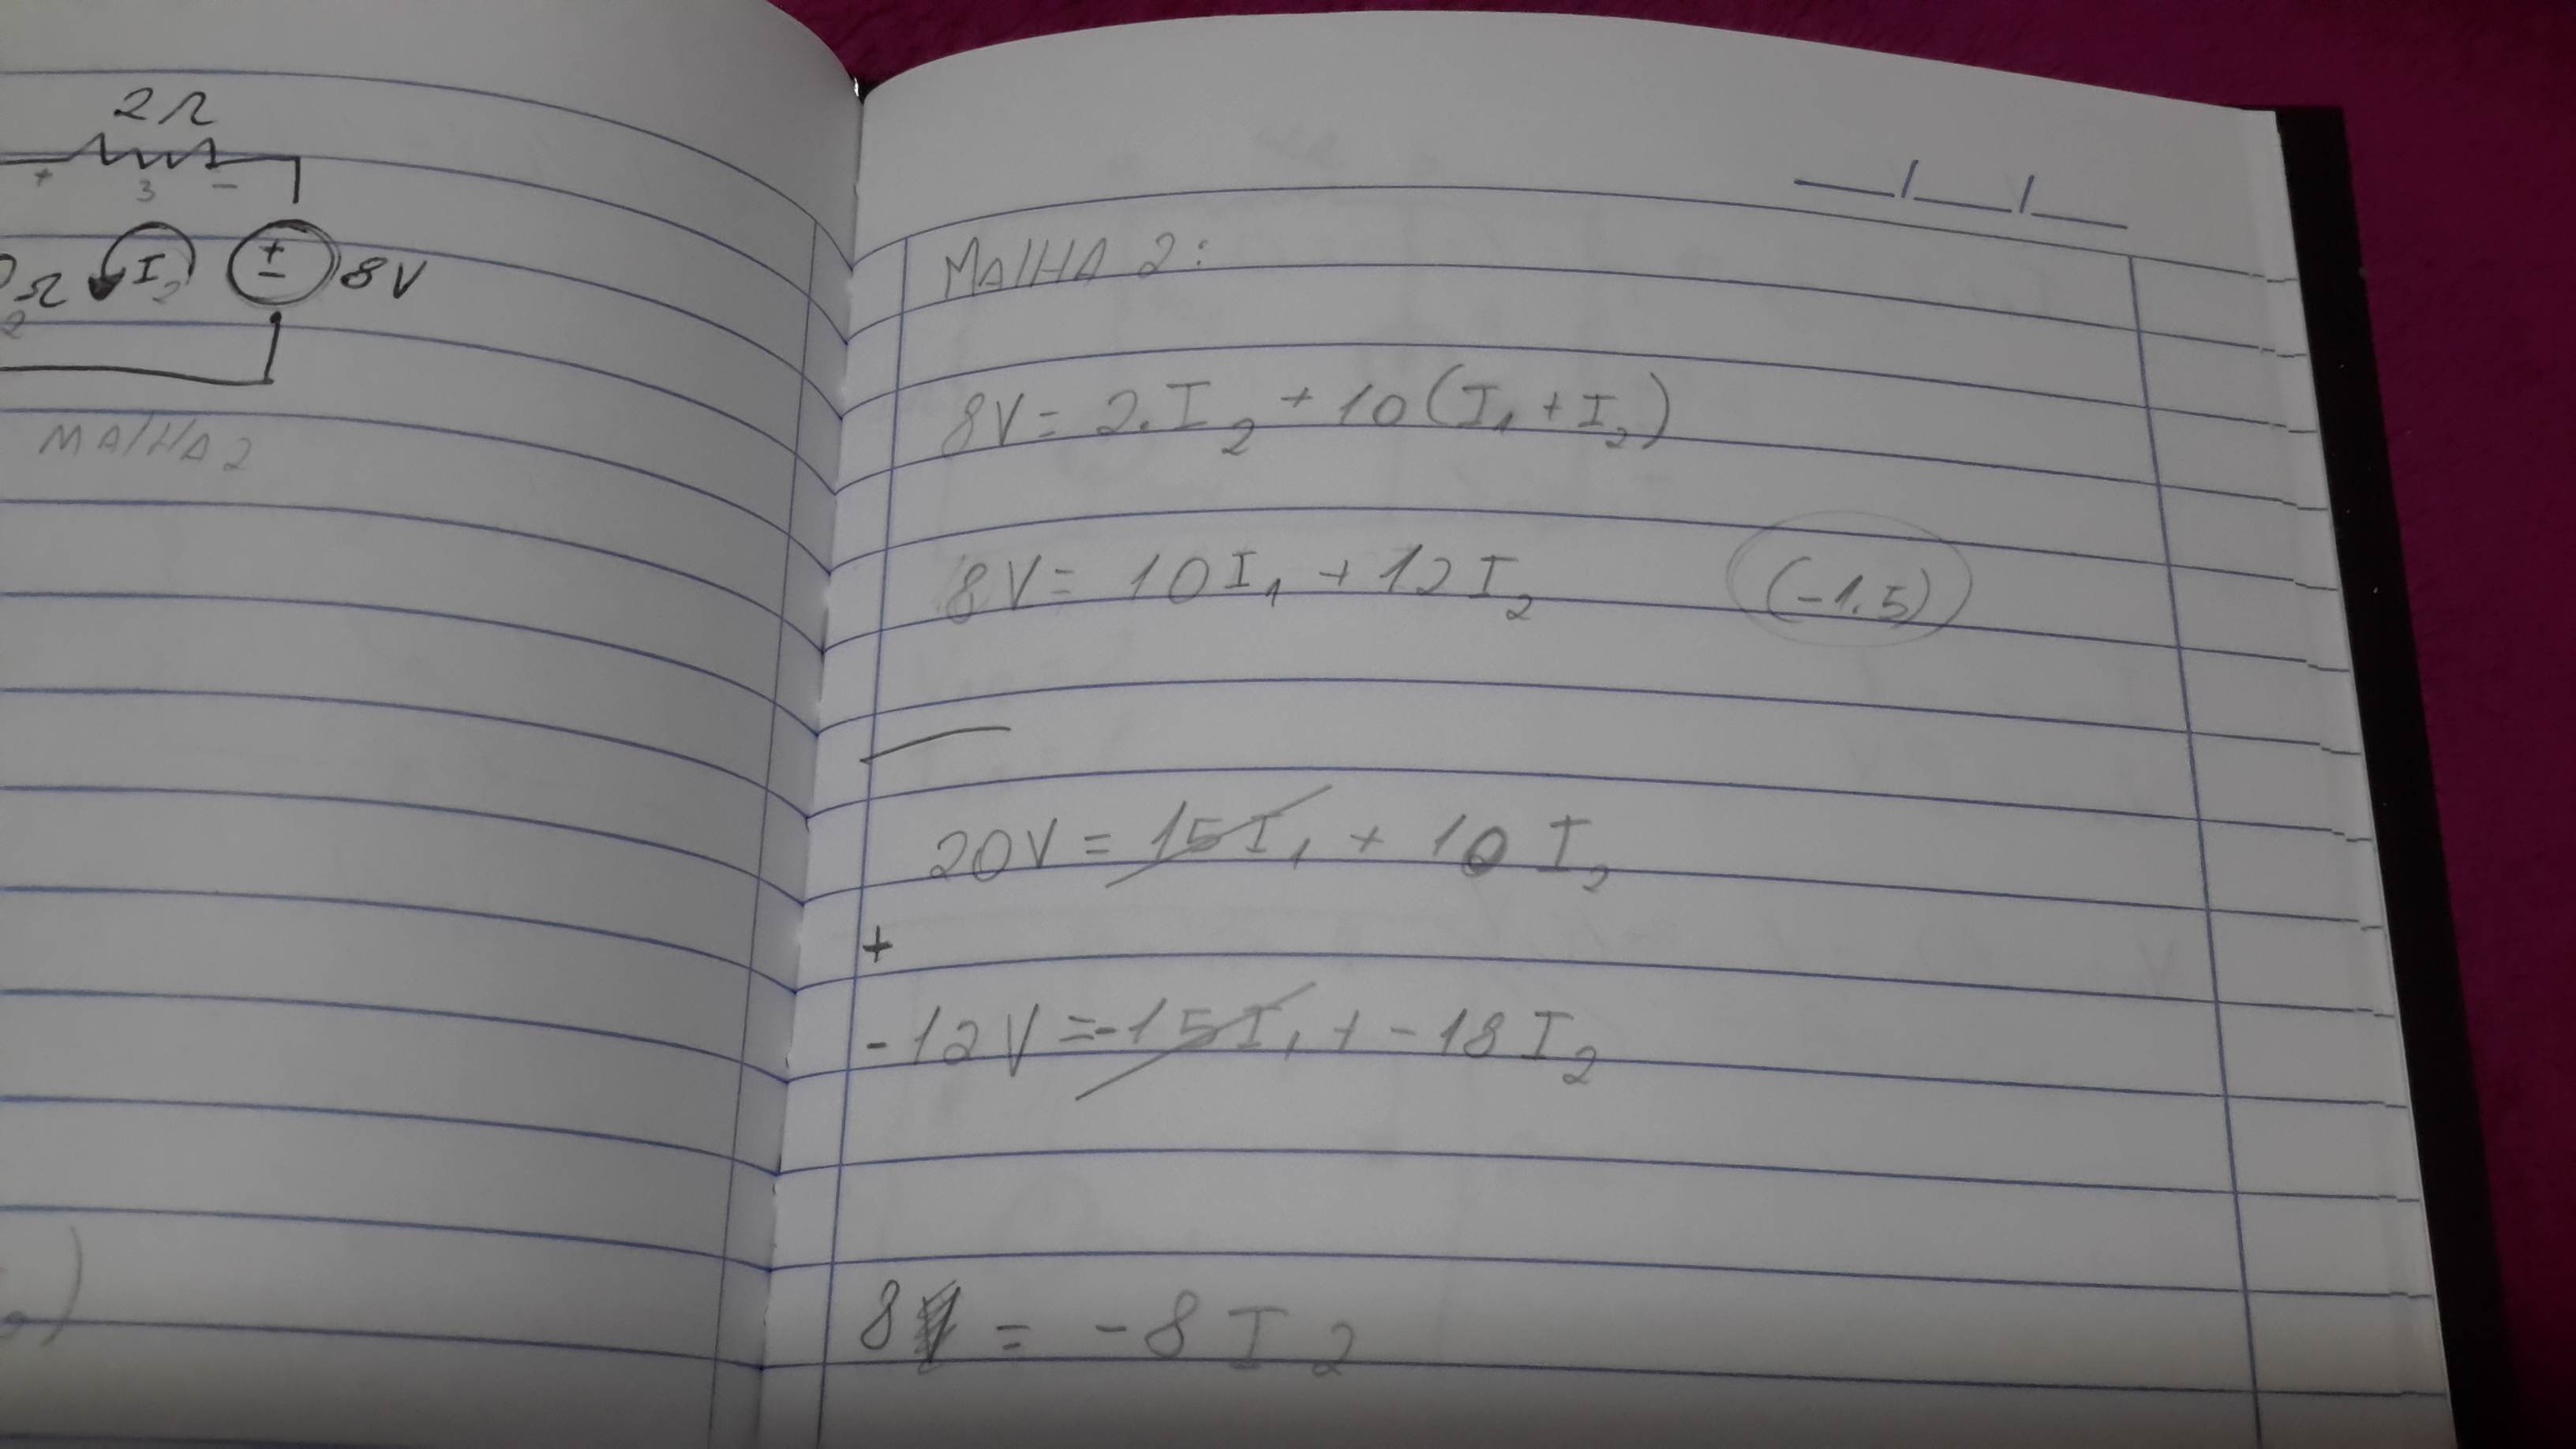 2Ω
+ 3 -
Ω I2 + - 8V
2
MALHA 2
)
__/__/__
MALHA 2:
8V = 2.I2 + 10(I1 + I2)
8V = 10I1 + 12I2 (-1.5)
20V = 15I1 + 10 I2
+
-12V = -15I1 + -18I2
8 = -8 I2